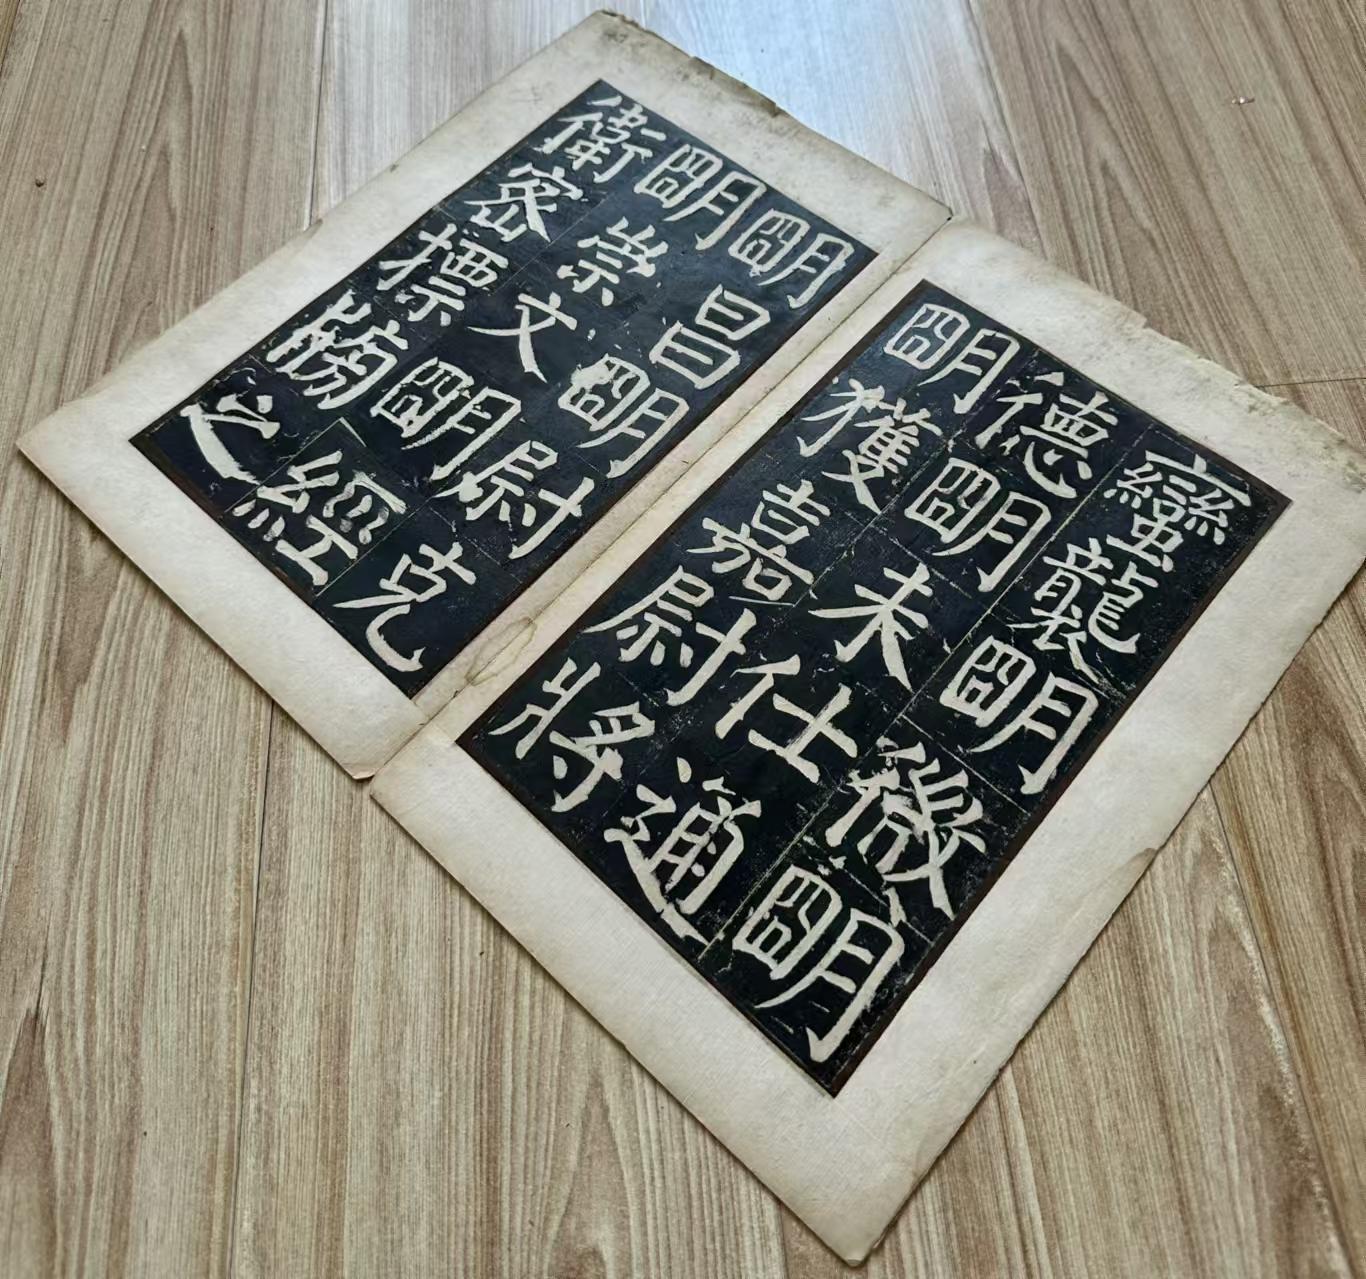 蠻襲明微明
德明未仕通
明獲嘉尉將
明昌明尉克
明崇文明經
衛密標牓之